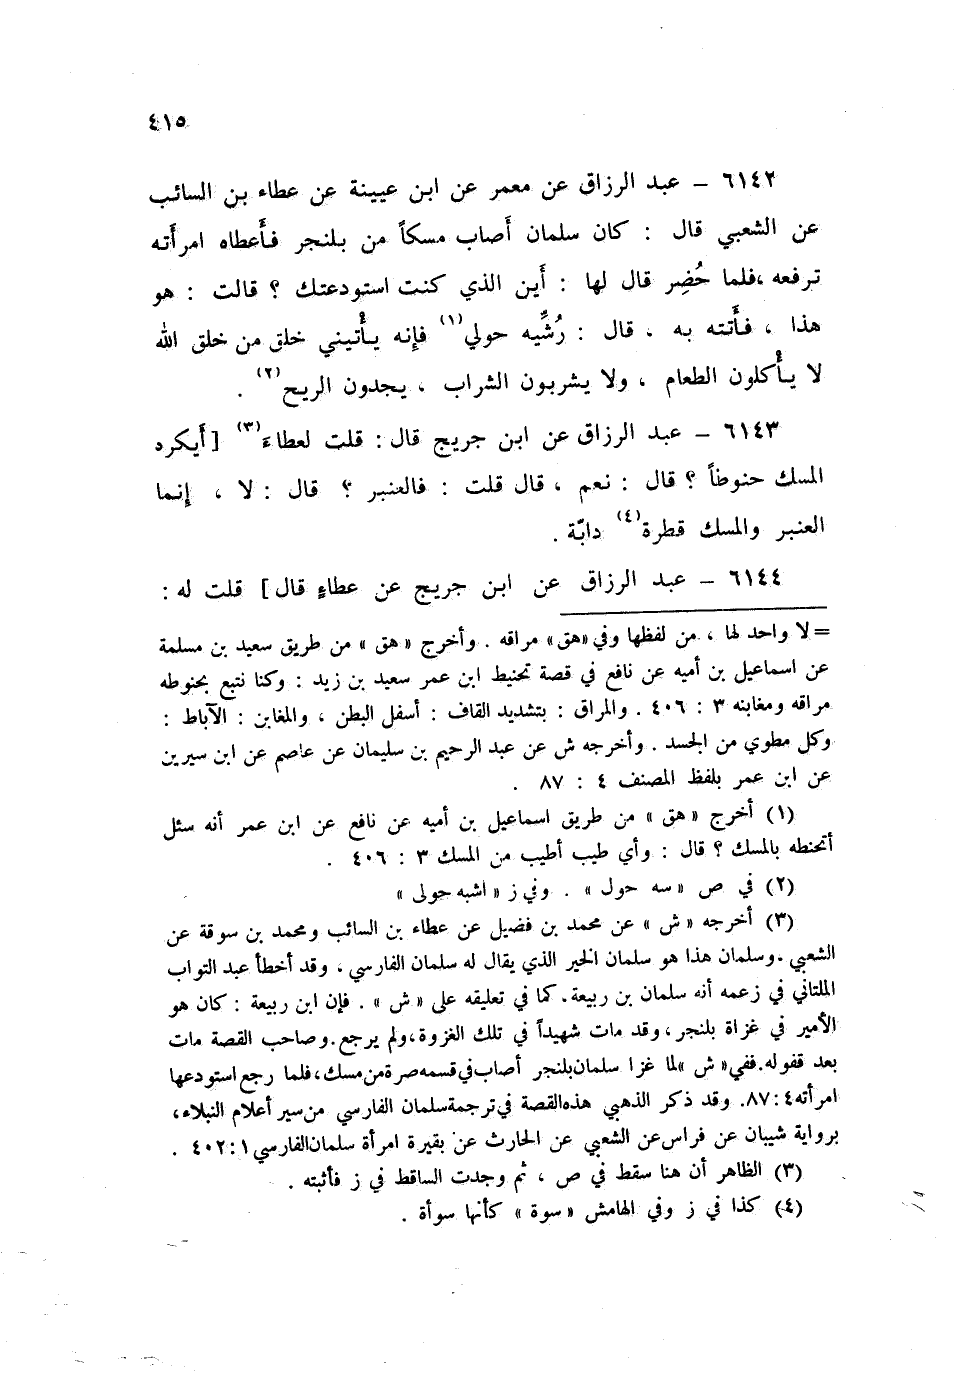 ٤١٥
٦١٤٢ – عبد الرزاق عن معمر عن ابن عيينة عن عطاء بن السائب
عن الشعبي قال : كان سلمان أصاب مسكاً من بلنجر فأعطاه امرأته
ترفعه ، فلما حُضِر قال لها : أين الذي كنت استودعتك ؟ قالت : هو
هذا ، فأتته به ، قال : رُشّيه حولي(١) فإنه يأتيني خلق من خلق الله
لا يأكلون الطعام ، ولا يشربون الشراب ، يجدون الريح(٢) .
٦١٤٣ – عبد الرزاق عن ابن جريج قال : قلت لعطاء(٣) [أيكره
المسك حنوطاً ؟ قال : نعم ، قال قلت : فالعنبر ؟ قال : لا ، إنما
العنبر والمسك قطرة(٤) دابّة .
٦١٤٤ – عبد الرزاق عن ابن جريج عن عطاءٍ قال] قلت له :
= لا واحد لها ، من لفظها وفي «هق» مراقه . وأخرج « هق » من طريق سعيد بن مسلمة
عن اسماعيل بن أميه عن نافع في قصة تحنيط ابن عمر سعيد بن زيد : وكنا نتبع بحنوطه
مراقه ومغابنه ٣ : ٤٠٦ . والمراق : بتشديد القاف : أسفل البطن ، والمغابن : الآباط :
وكل مطوي من الجسد . وأخرجه ش عن عبد الرحيم بن سليمان عن عاصم عن ابن سيرين
عن ابن عمر بلفظ المصنف ٤ : ٨٧ .
(١) أخرج « هق » من طريق اسماعيل بن أميه عن نافع عن ابن عمر أنه سئل
أتحنطه بالمسك ؟ قال : وأي طيب أطيب من المسك ٣ : ٤٠٦ .
(٢) في ص « سه حول » . وفي ز « اشبه حولى »
(٣) أخرجه « ش » عن محمد بن فضيل عن عطاء بن السائب ومحمد بن سوقة عن
الشعبي . وسلمان هذا هو سلمان الخير الذي يقال له سلمان الفارسي ، وقد أخطأ عبد التواب
الملتاني في زعمه أنه سلمان بن ربيعة . كما في تعليقه على « ش » . فإن ابن ربيعة : كان هو
الأمير في غزاة بلنجر ، وقد مات شهيداً في تلك الغزوة ، ولم يرجع . وصاحب القصة مات
بعد قفوله . ففي « ش » لما غزا سلمان بلنجر أصاب في قسمه صرة من مسك ، فلما رجع استودعها
امرأته ٤ : ٨٧ . وقد ذكر الذهبي هذه القصة في ترجمة سلمان الفارسي من سير أعلام النبلاء ،
برواية شيبان عن فراس عن الشعبي عن الحارث عن بقيرة امرأة سلمان الفارسي ١ : ٤٠٢ .
(٣) الظاهر أن هنا سقط في ص ، ثم وجدت الساقط في ز فأثبته .
(٤) كذا في ز وفي الهامش « سوة » كأنها سوأة .